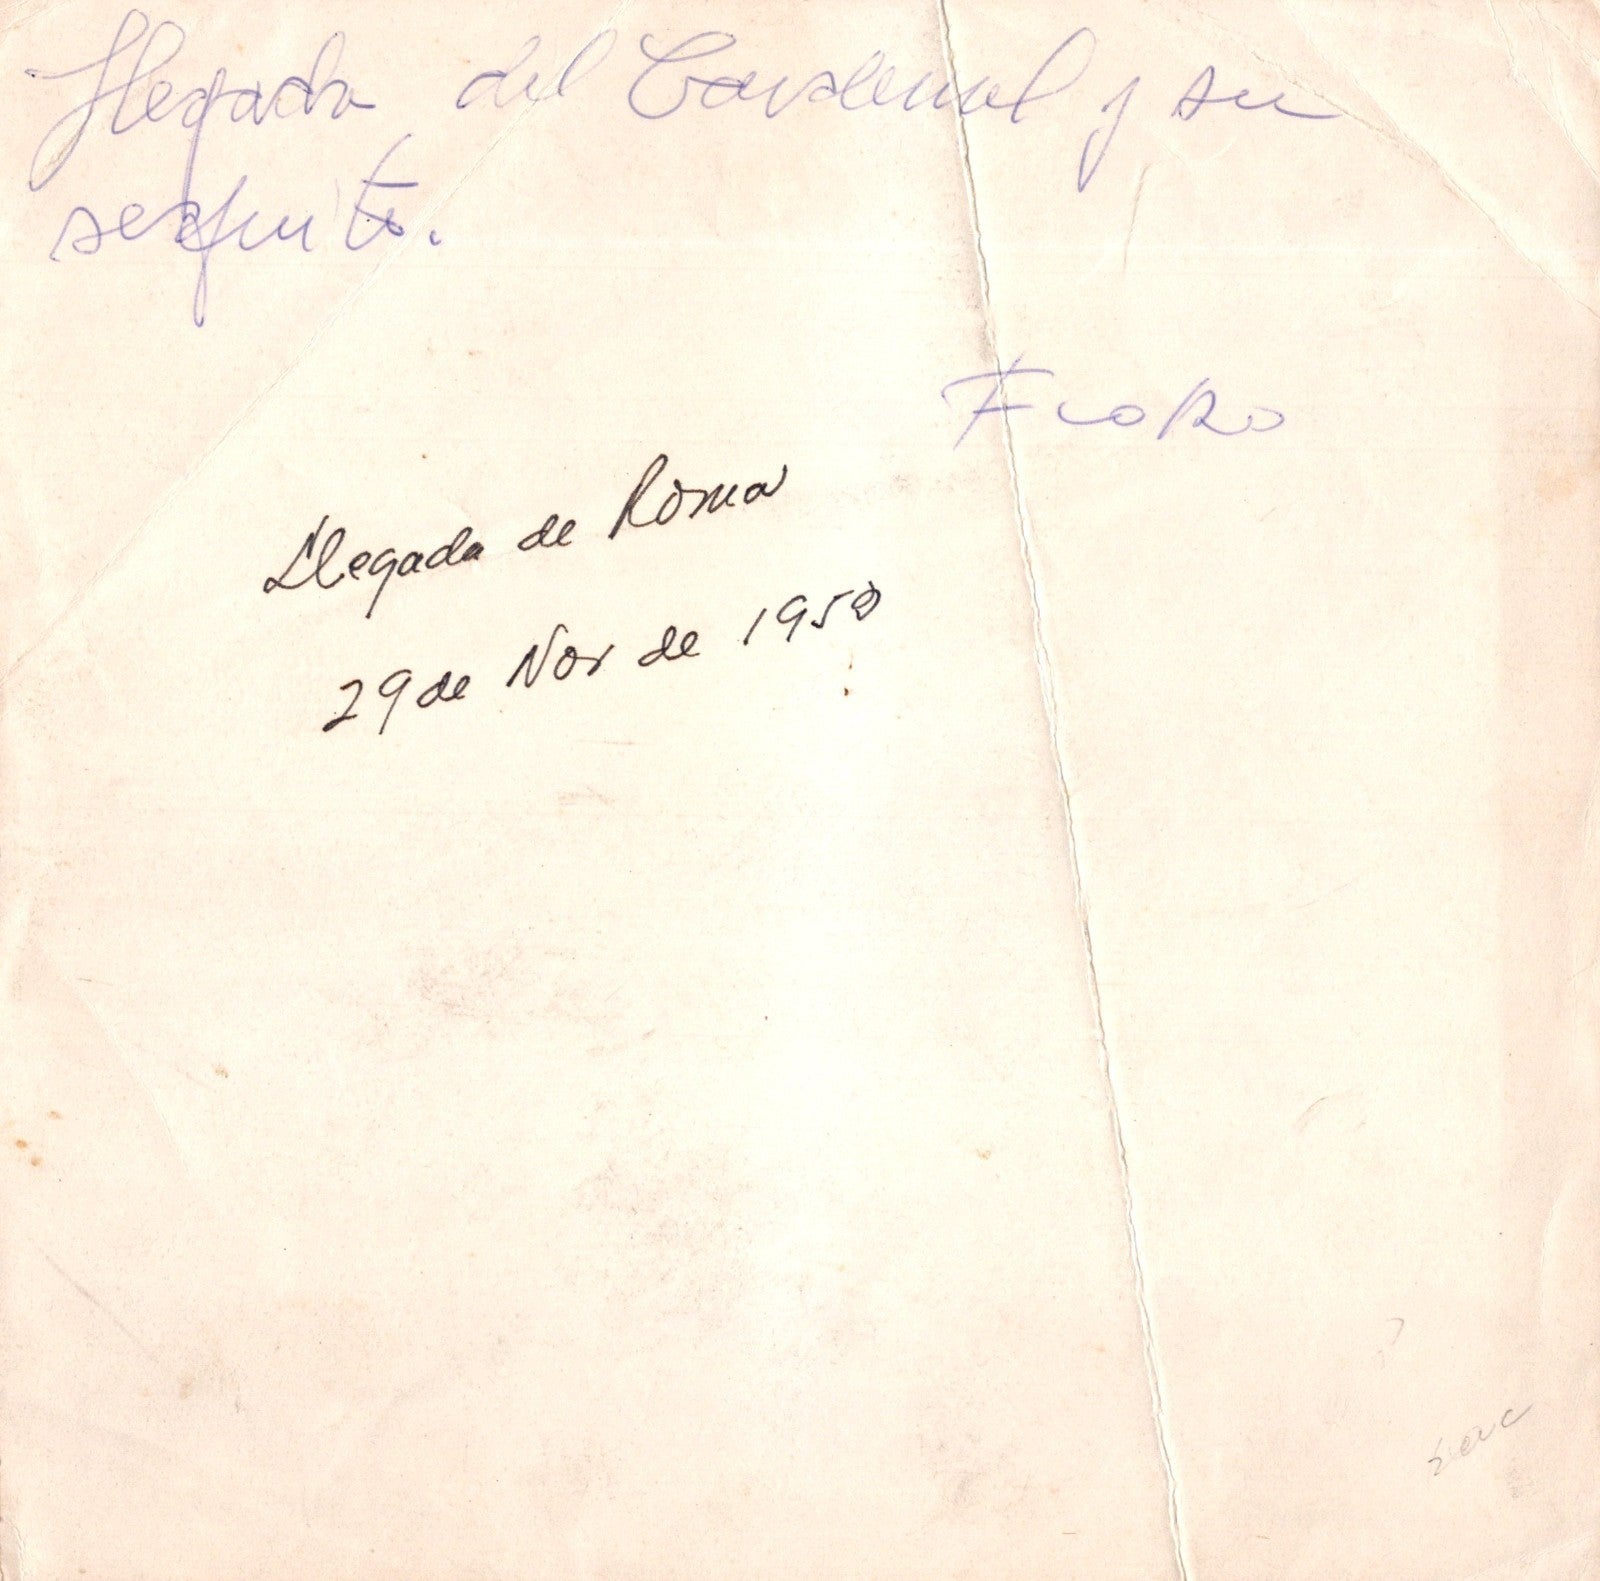 Llegada del Cardenal y su
sequito.
Llegada de Roma
29 de Nov de 1950